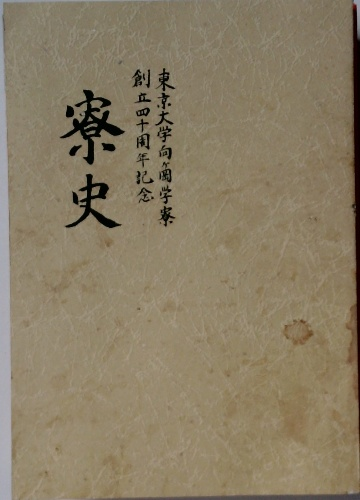 東京大学向ヶ岡学寮
創立四十周年記念
寮史